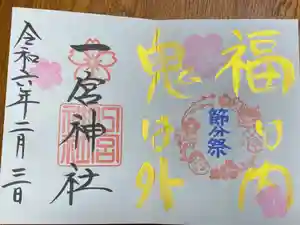 福は内
鬼は外
節分祭
一宮神社
令和六年二月三日